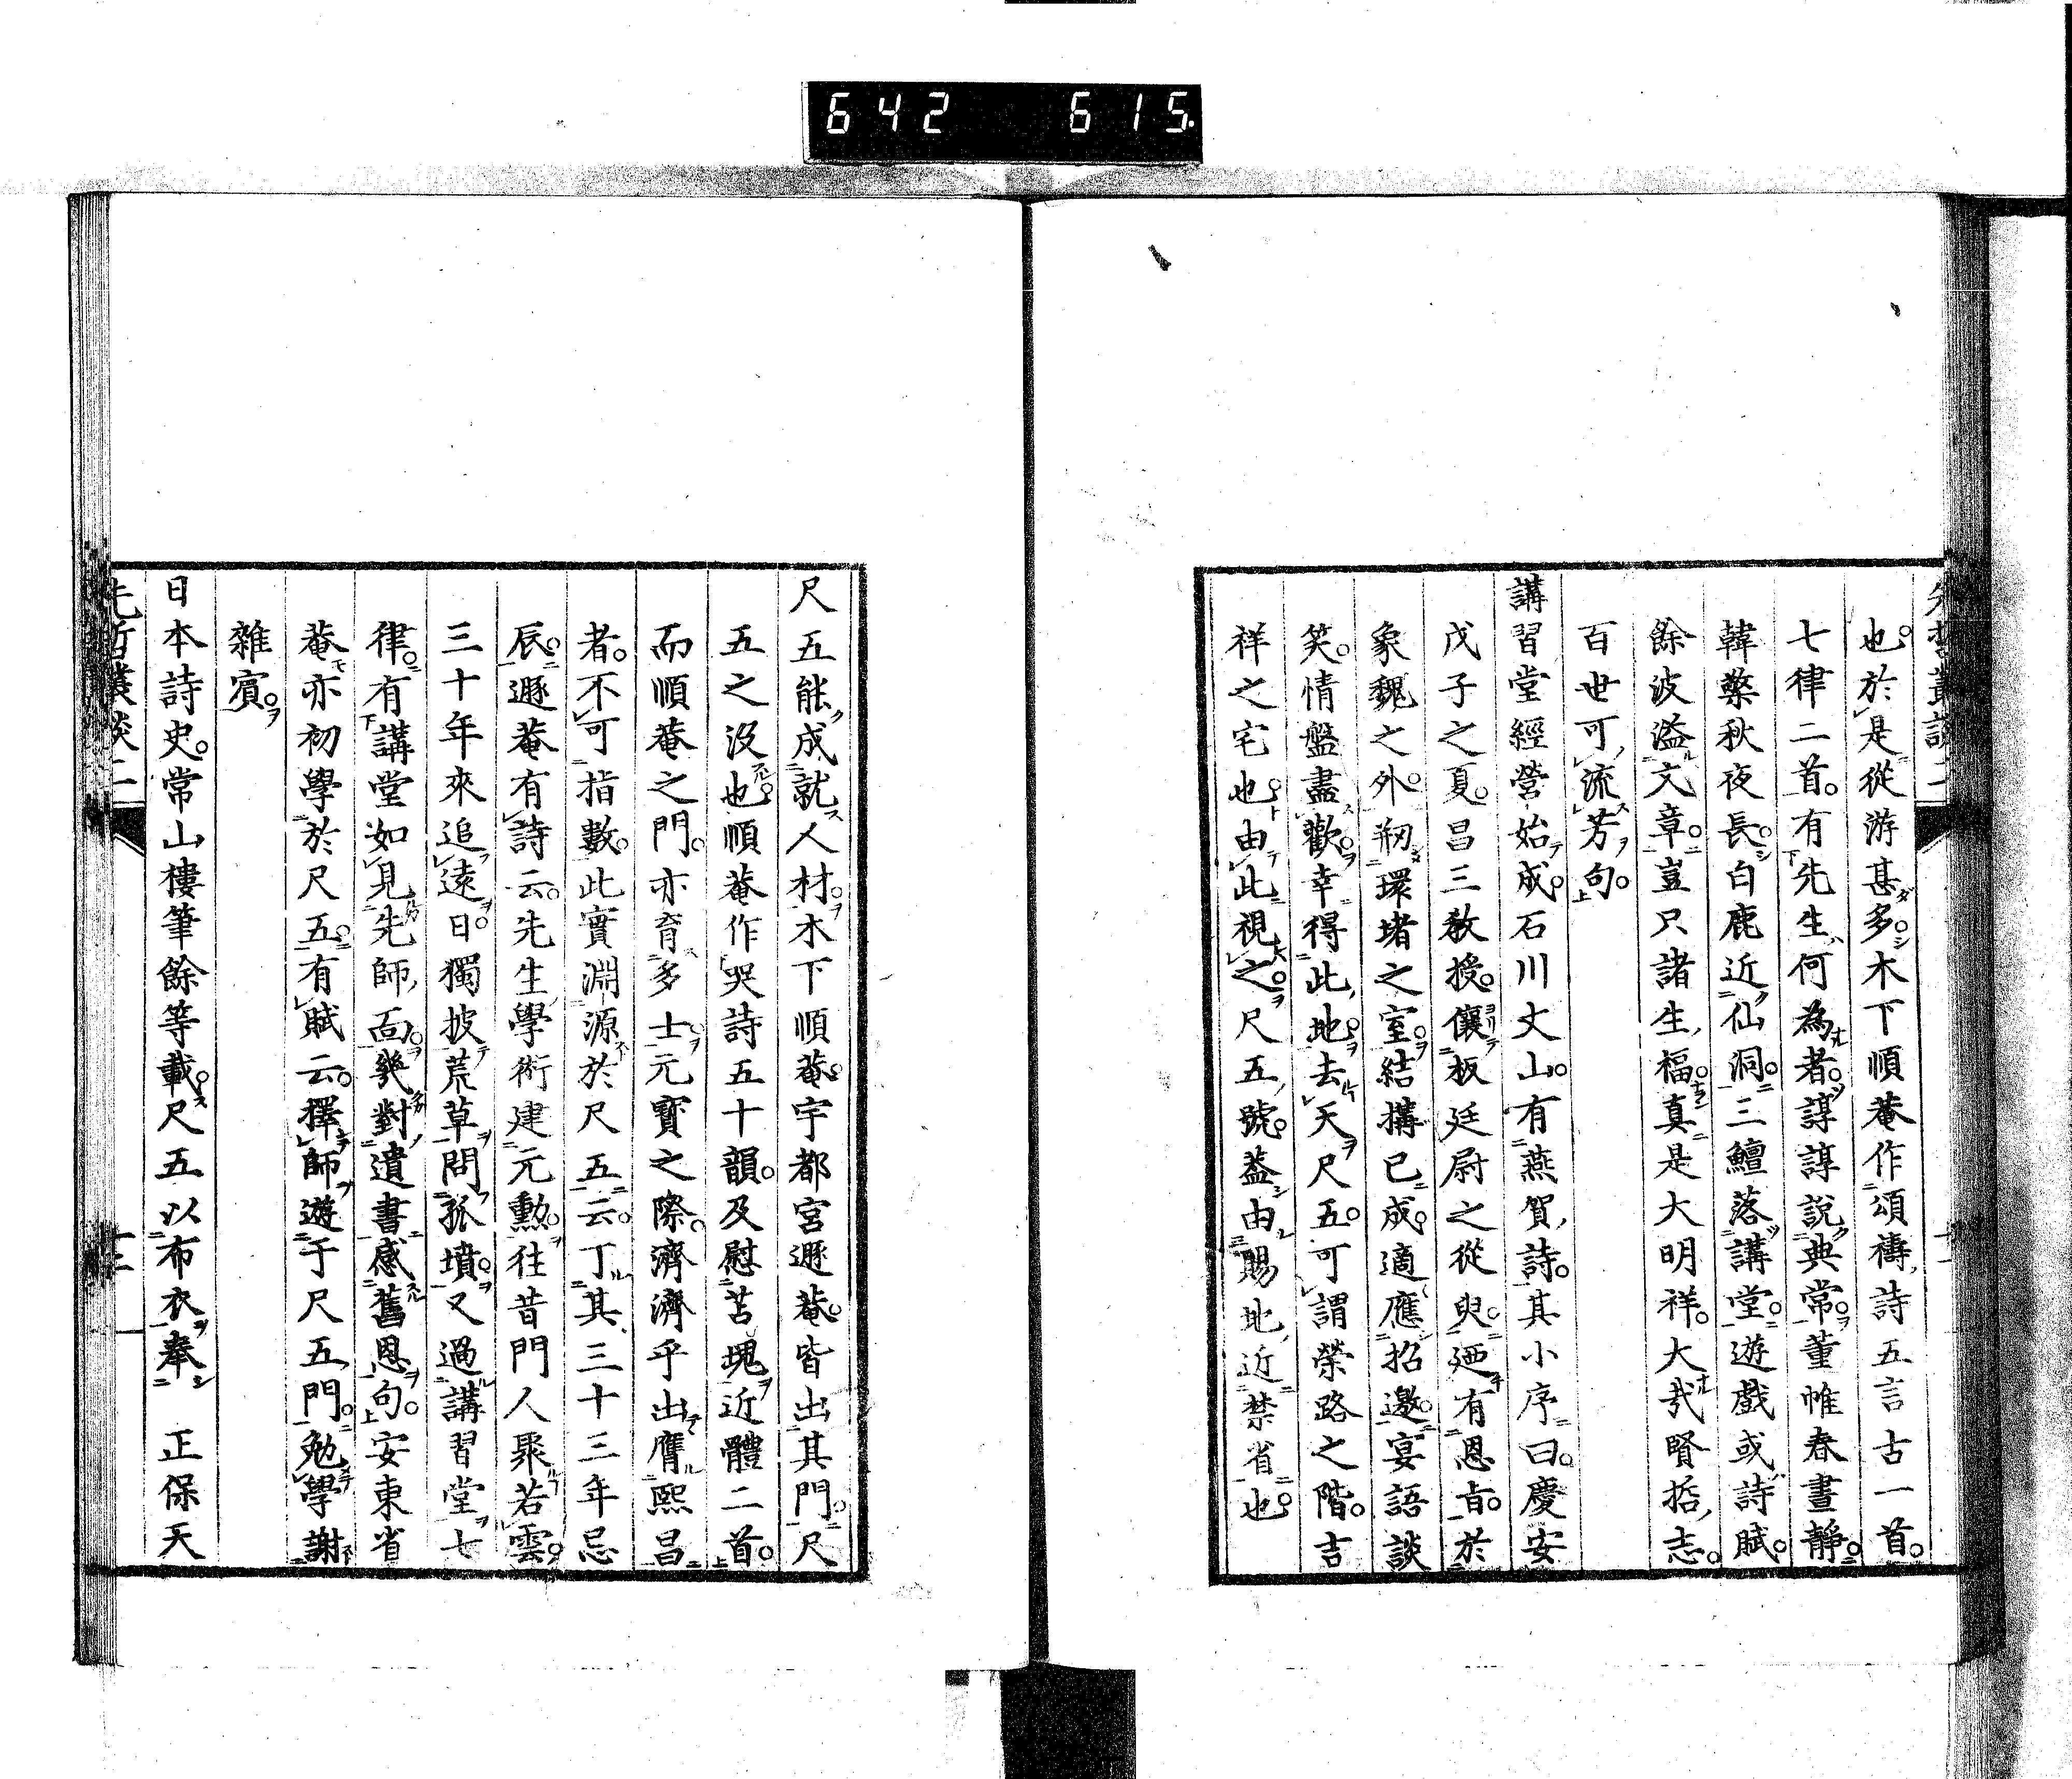 642 615
也。於是從游甚多。木下順菴作頌禱詩五言古一首。
七律二首。有先生何為者。諄諄說典常。董帷春晝靜。
韓檠秋夜長。白鹿近仙洞。三鱣落講堂。遊戲或詩賦。
餘波溢文章。豈只諸生福。真是大明祥。大哉賢哲志。
百世可流芳句。
講習堂經營始成。石川丈山。有燕賀詩。其小序曰。慶安
戊子之夏。昌三教授。儴板廷尉之從臾。廼有恩旨。於
象魏之外。剏環堵之室。結構已成。適應招邀。宴語談
笑。情盤盡歡。幸得此地。去天尺五。可謂榮路之階。吉
祥之宅也。由此視之。尺五號。蓋由賜地近禁省也。
尺五能成就人材。木下順菴。宇都宮遯菴。皆出其門。尺
五之沒也。順菴作哭詩五十韻。及慰苫塊近體二首。
而順菴之門。亦育多士。元寶之際。濟濟乎出膺熙昌
者。不可指數。此實淵源於尺五云。丁其三十三年忌
辰。遯菴有詩云。先生學術建元勲。往昔門人聚若雲。
三十年來追遠日。獨披荒草問孤墳。又過講習堂七
律。有講堂如見先師面。幾對遺書感舊恩句。安東省
菴亦初學於尺五。有賦云。擇師遊于尺五門。勉學謝
雜賓。
日本詩史。常山樓筆餘等載。尺五以布衣奉 正保天
先哲叢談二 十二